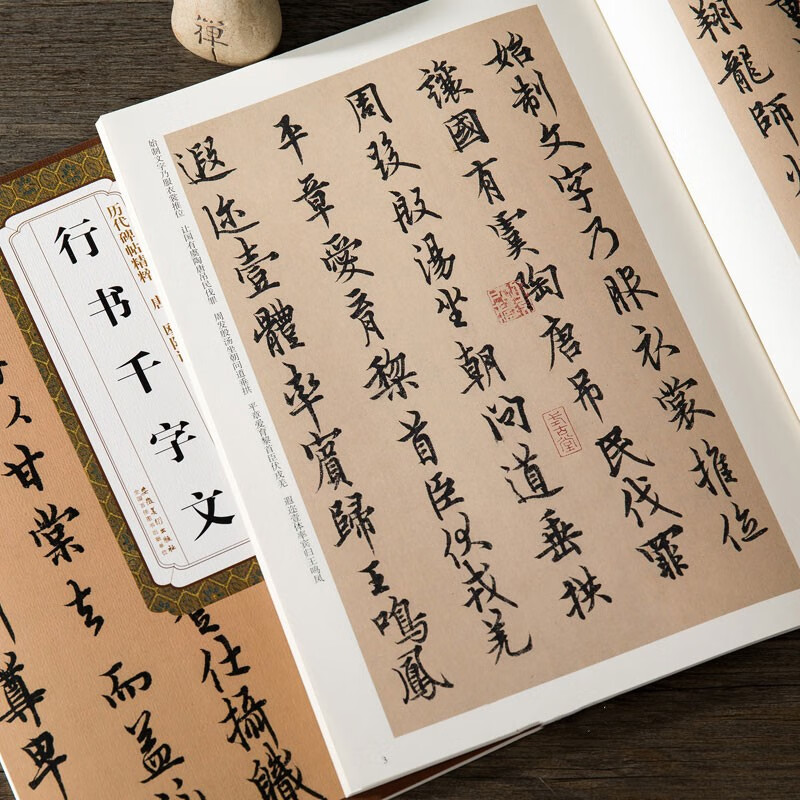 禪
翔龍師
始制文字乃服衣裳推位
讓國有虞陶唐吊民伐罪
周發殷湯坐朝問道垂拱
平章愛育黎首臣伏戎羌
遐迩壹體率賓歸王鳴鳳
始制文字乃服衣裳推位 让国有虞陶唐吊民伐罪 周发殷汤坐朝问道垂拱 平章爱育黎首臣伏戎羌 遐迩壹体率宾归王鸣凤
3
历代碑帖精粹 唐 欧阳
行书千字文
安徽美术出版社
全国百佳图书出版单位
仕攝職
以甘棠去而益
尊卑